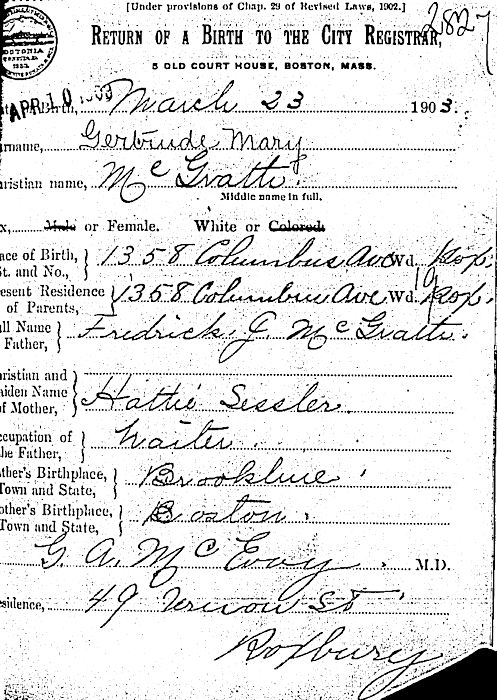 [Under provisions of Chap. 29 of Revised Laws, 1902.]
2827
RETURN OF A BIRTH TO THE CITY REGISTRAR,
5 OLD COURT HOUSE, BOSTON, MASS.
APR 10 1903
Birth, March 23 1903.
urname, Gertrude Mary
hristian name, Mc Gratti.
Middle name in full.
x, Male or Female. White or Colored.
ace of Birth, St. and No., } 1358 Columbus Ave Wd. Rox.
resent Residence of Parents, } 1358 Columbus Ave Wd. 19 Rox.
ull Name Father, } Fredrick J Mc Gratti.
hristian and aiden Name of Mother, } Hattie Sessler
ccupation of he Father, } Waiter.
ather's Birthplace, Town and State, } Brookline
other's Birthplace, Town and State, } Boston.
G. A. Mc Evoy. M.D.
esidence, 49 Vernon St
Roxbury